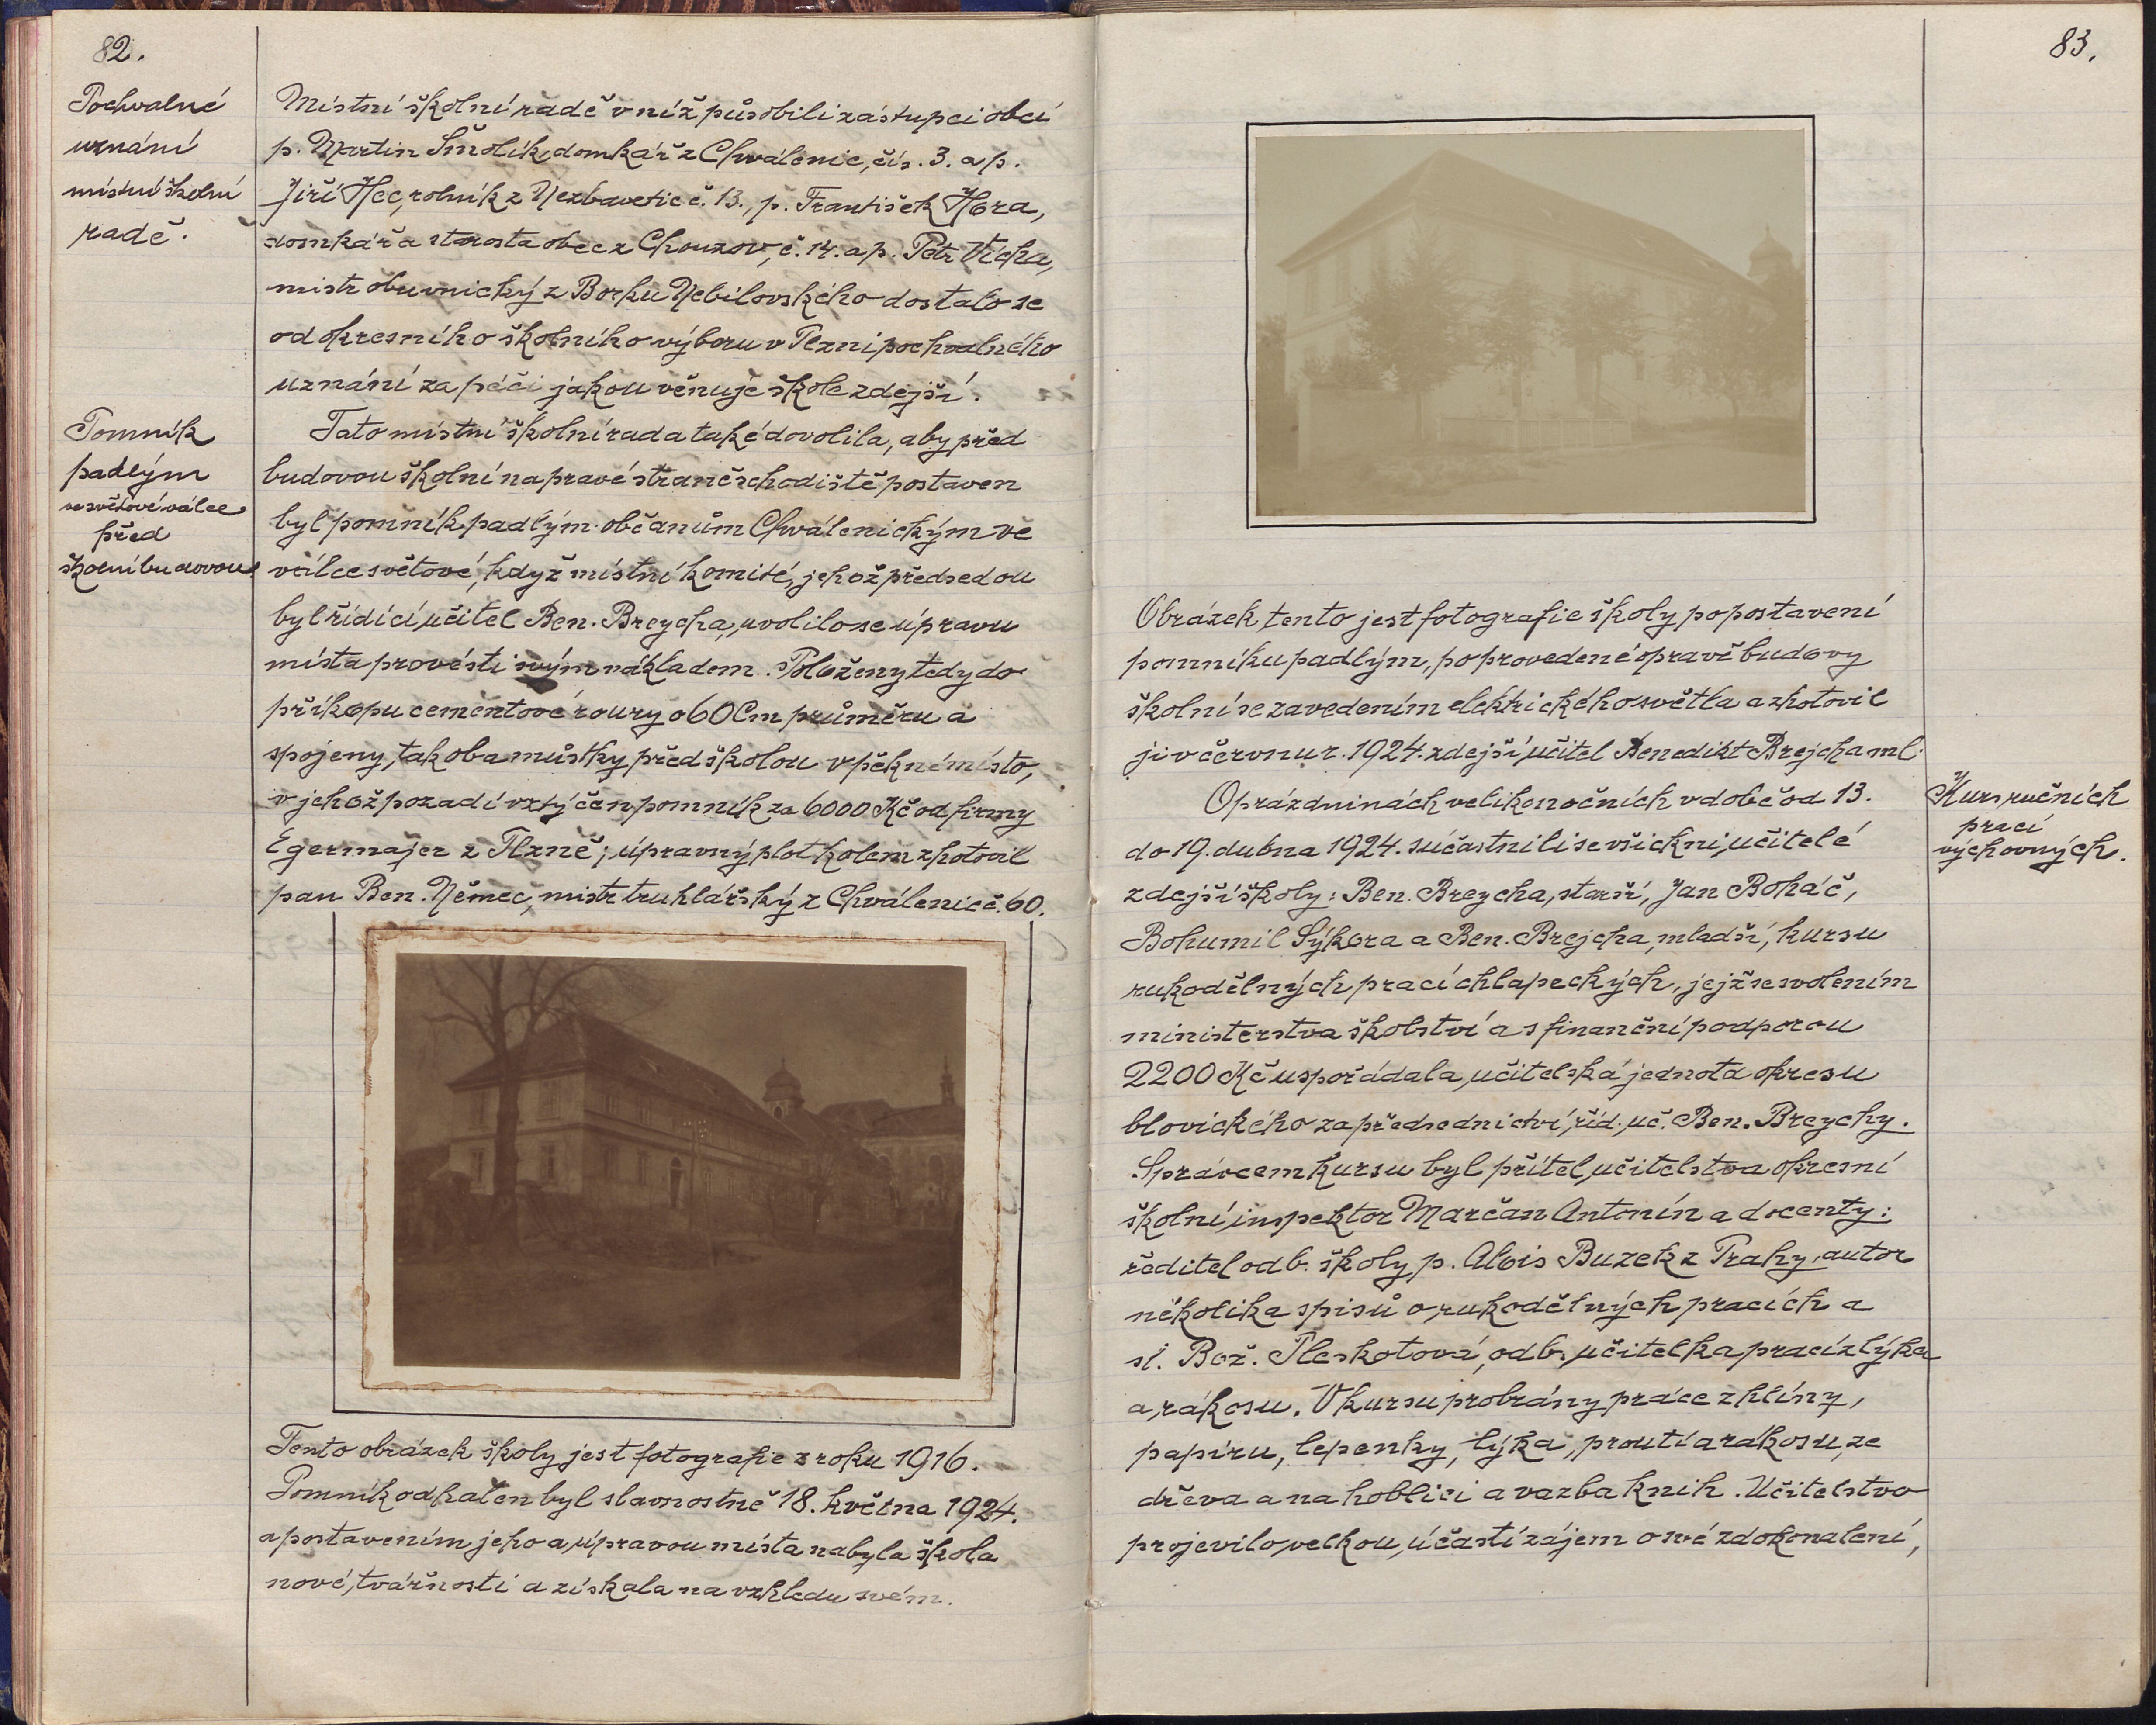 82.
Pochvalné
uznání
místní školní
radě.
Místní školní radě v níž působili zástupci obcí
p. Martin Smolík, domkář z Chválenic, čís. 3. a p.
Jiří Hec, rolník z Nezbavětic č. 13., p. František Hora,
domkář a starosta obce z Chouzov, č. 14. a p. Petr Vícha,
mistr obuvnický z Borku Nebílovského dostalo se
od okresního školního výboru v Plzni pochvalného
uznání za péči jakou věnuje škole zdejší.
Pomník
padlým
ve světové válce
před
školní budovou
Tato místní školní rada také dovolila, aby před
budovou školní na pravé straně schodiště postaven
byl pomník padlým občanům Chválenickým ve
válce světové, když místní komité, jehož předsedou
byl řídící učitel Ben. Breycha, uvolilo se úpravu
místa provésti svým nákladem. Položeny tedy do
příkopu cementové roury o 60 cm průměru a
spojeny, tak oba můstky před školou v pěkné místo,
v jehož pozadí vztýčen pomník za 6000 Kč od firmy
Egermajer z Plzně; úpravný plot kolem zhotovil
pan Ben. Němec, mistr truhlářský z Chválenic č. 60.
Tento obrázek školy jest fotografie z roku 1916.
Pomník odhalen byl slavnostně 18. května 1924.
a postavením jeho a úpravou místa nabyla škola
nové tvářnosti a získala na vzhledu svém.
83.
Obrázek tento jest fotografie školy po postavení
pomníku padlým, po provedené opravě budovy
školní se zavedením elektrického světla a zhotovil
ji v červnu r. 1924. zdejší učitel Benedikt Brejcha ml.
Kurs ručních
prací
výchovných.
O prázdninách velikonočních v době od 13.
do 19. dubna 1924. súčastnili se všickni učitelé
zdejší školy: Ben. Breycha, starší, Jan Boháč,
Bohumil Sýkora a Ben. Brejcha, mladší, kursu
rukodělných prací chlapeckých, jejž se svolením
ministerstva školství a s finanční podporou
2200 Kč uspořádala učitelská jednota okresu
blovického za předsednictví říd. uč. Ben. Breychy.
Správcem kursu byl přítel učitelstva okresní
školní inspektor Marčan Antonín a docenty:
ředitel odb. školy p. Alois Buzek z Prahy, autor
několika spisů o rukodělných pracích a
sl. Bož. Pleskotová, odb. učitelka prací z lýka
a rákosu. V kursu probrány práce z hlíny,
papíru, lepenky, lýka, proutí a rákosu, ze
dřeva a na hoblici a vazba knih. Učitelstvo
projevilo velkou účastí zájem o své zdokonalení,